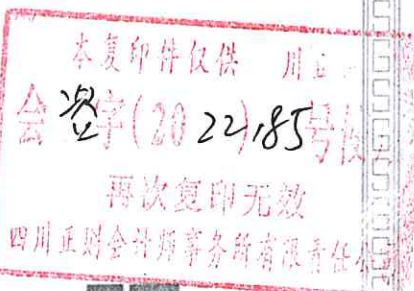 本复印件仅供 川正
会资字(2022)185号使
再次复印无效
四川正则会计师事务所有限责任公